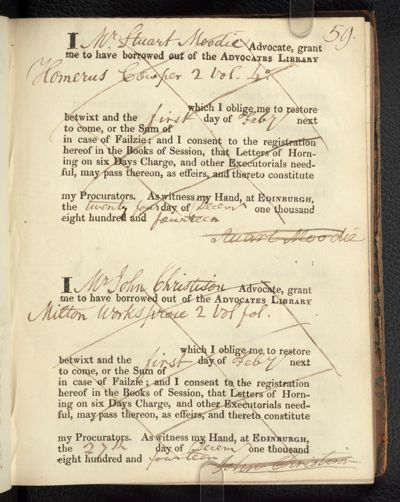 59.
I Mr. Stuart Moodie Advocate, grant
me to have borrowed out of the ADVOCATES LIBRARY
Homerus Cowper 2 Vol. 4o
which I oblige me to restore
betwixt and the first day of Feby next
to come, or the Sum of
in case of Failzie; and I consent to the registration
hereof in the Books of Session, that Letters of Horn-
ing on six Days Charge, and other Executorials need-
ful, may pass thereon, as effeirs, and thereto constitute
my Procurators. As witness my Hand, at EDINBURGH,
the twenty four day of Decem one thousand
eight hundred and fourteen
Stuart Moodie
I Mr. John Christison Advocate, grant
me to have borrowed out of the ADVOCATES LIBRARY
Milton Works prose 2 Vol fol.
which I oblige me to restore
betwixt and the first day of Feby next
to come, or the Sum of
in case of Failzie; and I consent to the registration
hereof in the Books of Session, that Letters of Horn-
ing on six Days Charge, and other Executorials need-
ful, may pass thereon, as effeirs, and thereto constitute
my Procurators. As witness my Hand, at EDINBURGH,
the 27th day of Decem one thousand
eight hundred and fourteen
John Christison